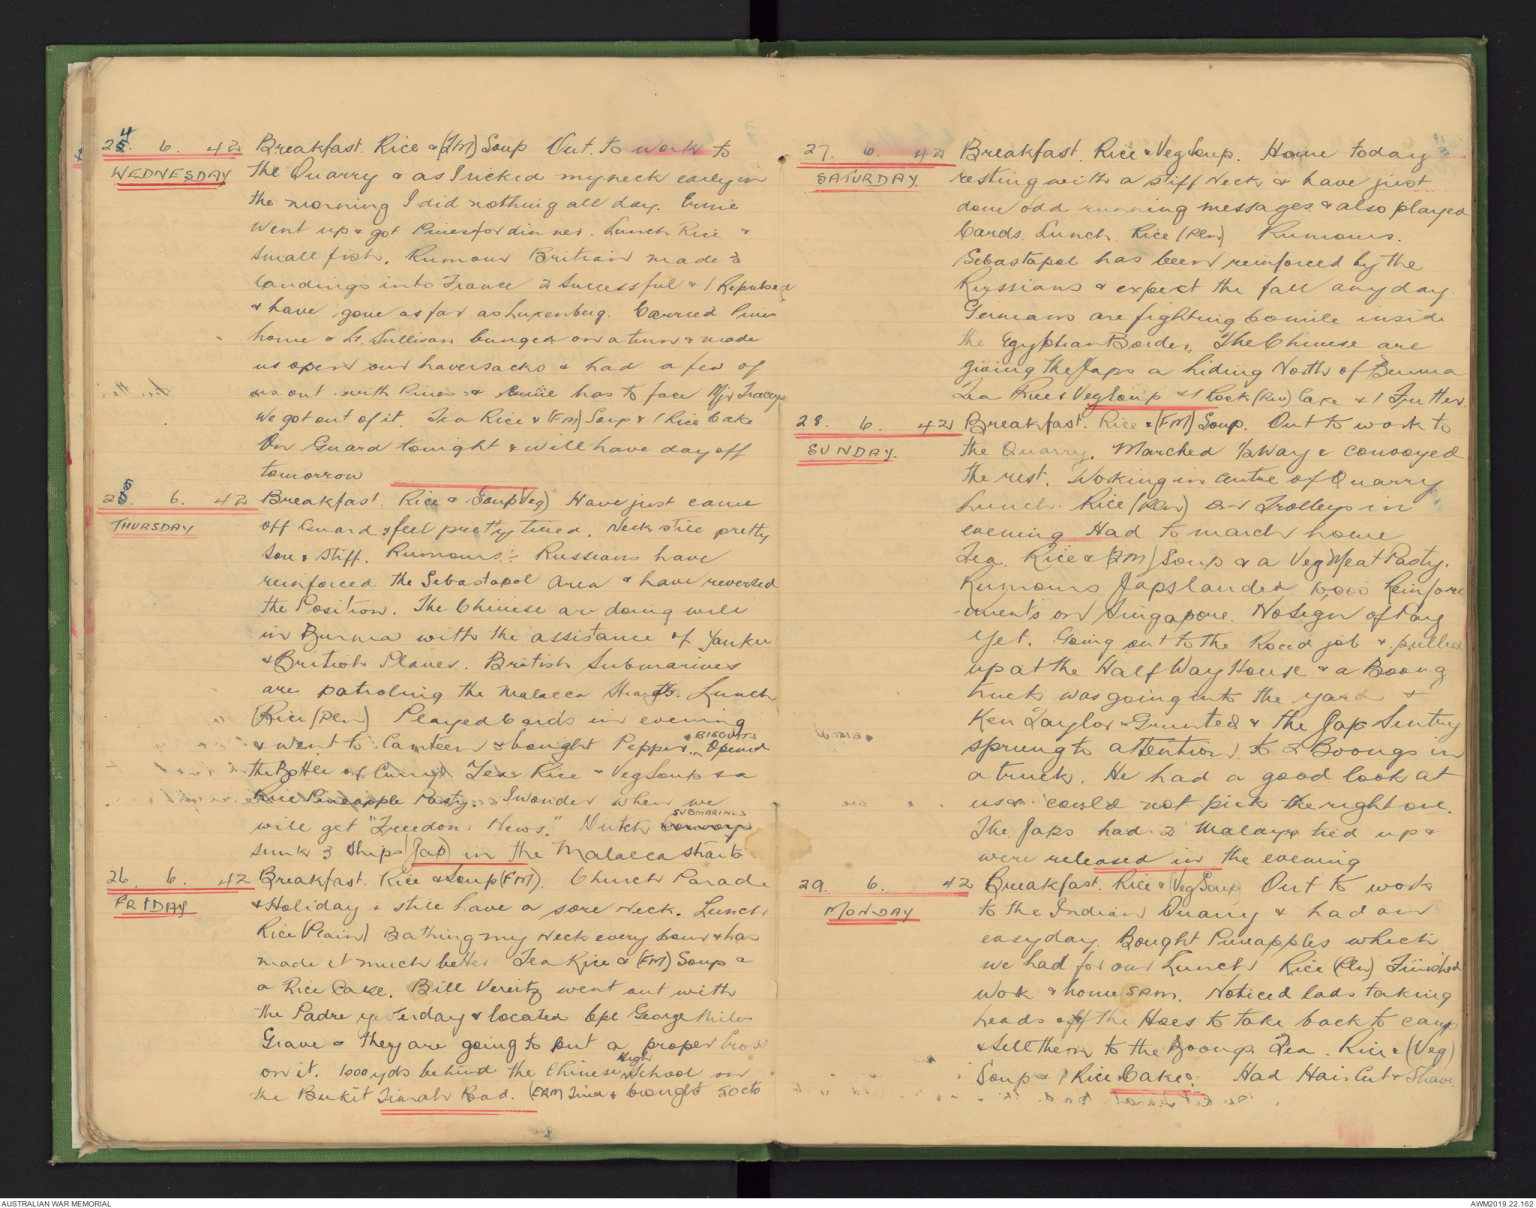 24. 6. 42 Breakfast. Rice & (FM) Soup Out to work to
WEDNESDAY the Quarry & as I ricked my neck early in
the morning I did nothing all day. Ernie
went up & got Pines for dinner. Lunch Rice &
small fish. Rumour Britian made 3
landings into France 2 Successful & 1 Repulsed
& have gone as far as Luxenberg. Carried Pines
home & Lt. Sullivan bunged on a turn & made
us open our haversacks & had a few of
us out with Pines & Ernie has to face Mjr Tracey
We got out of it. Tea Rice & (FM) Soup & 1 Rice Cake
On Guard tonight & will have day off
tomorrow
25. 6. 42 Breakfast. Rice & Soup (Veg) Have just came
THURSDAY off Guard & feel pretty tired. Neck still pretty
sore & stiff. Rumours: Russians have
reinforced the Sebastapol Area & have reversed
the Position. The Chinese are doing well
in Burma with the assistance of Yankee
& British Planes. British Submarines
are patroling the Malacca Straits. Lunch
Rice (Pln) Played Cards in evening
& went to Canteen & bought Pepper & BISCUITS Opened
the Bottle of Curry Tea Rice & Veg Soup & a
Rice Pineapple Pasty. I wonder when we
will get "Freedom News." Dutch SUBMARINES
sunk 3 Ships (Jap) in the Malacca straits
26. 6. 42 Breakfast. Rice & Soup (FM). Church Parade
FRIDAY & Holiday & still have a sore Neck. Lunch
Rice (Plain) Bathing my Neck every hour & has
made it much better Tea Rice & (FM) Soup &
a Rice Cake. Bill Vereitz went out with
the Padre yesterday & located Cpl George Miles
Grave & they are going to put a proper Cross
on it. 1000 yds behind the Chinese High School on
the Bukit Timah Road. (ERM Tined & bought 50 cts
27. 6. 42 Breakfast. Rice & Veg Soup. Home today
SATURDAY. resting with a stiff Neck & have just
done odd running messages & also played
Cards. Lunch. Rice (Pln) Rumours.
Sebastapol has been reinforced by the
Russians & expect the fall anyday.
Germans are fighting 60 mile inside
the Egyphan Border. The Chinese are
giving the Japs a hiding North of Burma
Tea Rice & Veg Soup & 1 Rock (Rice) Cake & 1 Fritter.
28. 6. 42 Breakfast. Rice & (FM) Soup. Out to work to
SUNDAY. the Quarry. Marched ½ Way & convoyed
the rest. Working in centre of Quarry
Lunch. Rice (Pln) Trolleys in
evening Had to march home
Tea. Rice & (FM) Soup & a Veg Meat Pasty.
Rumours Japs landed 10,000 Reinforce
-ments on Singapore. No sign of Pay
yet. Going out to the Road job & pulled
up at the Half Way House & a Boong
truck was going into the yard &
Ken Taylor Grunted & the Jap Sentry
sprung to attention to 2 Boongs in
a truck. He had a good look at
us & could not pick the right one.
The Japs had 2 Malays tied up &
were released in the evening
29. 6. 42 Breakfast. Rice & (Veg Soup) Out to work
MONDAY to the Indian Quarry & had an
easy day. Bought Pineapples which
we had for our Lunch Rice (Pln) Finished
work & home 5 P.M. Noticed lads taking
heads off the Hoes to take back to camp
& sell them to the Boongs. Tea. Rice & (Veg)
Soup & 1 Rice Cake. Had Hair Cut & Shave
AUSTRALIAN WAR MEMORIAL
AWM2019.22.162